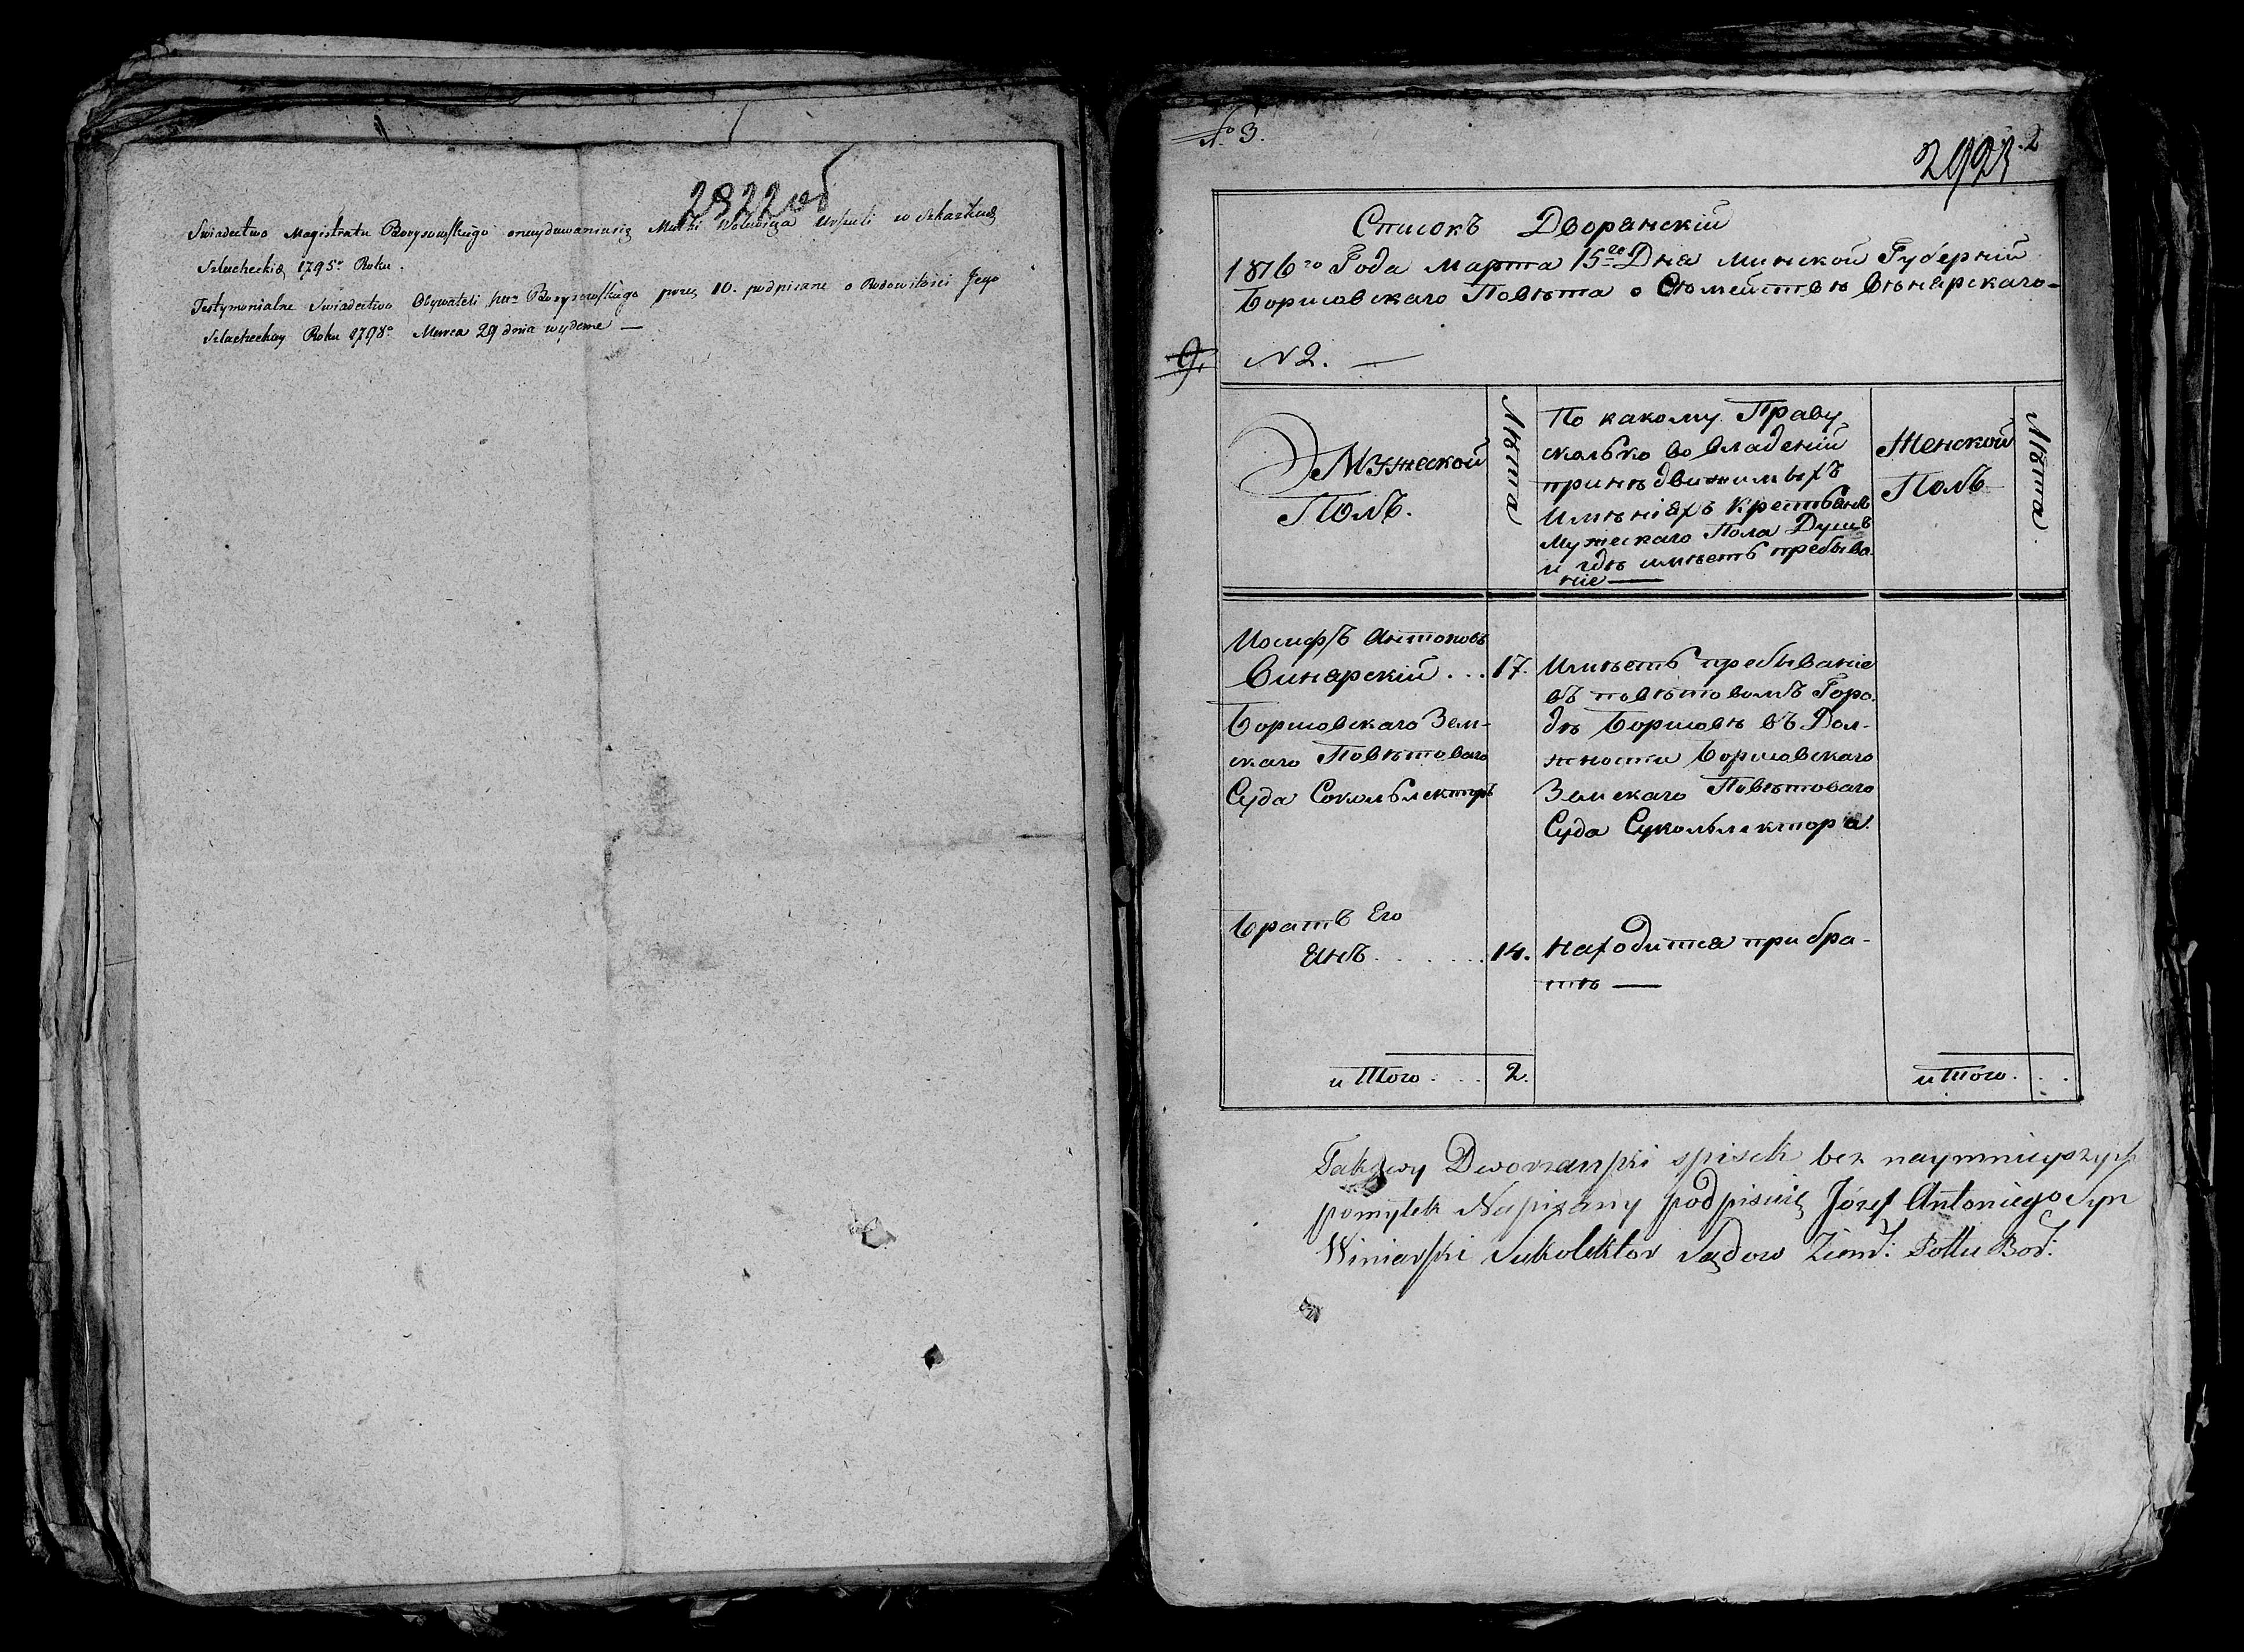 2822об
Swiadectwo Magistratu Borysowskiego Matki w
Szlacheckię 1795º Roku.
Testymonialne Swiadectwo Obywateli Borysowskiego przez 10. podpisane o Rodowitości Jego
Szlacheckiey Roku 1798º Marca 29 dnia wydane —
№ 3.
2
Списокъ Дворянскій
1816го Года Марта 15го Дня Минской Губерніи
Борисовскаго Повѣта о Сѣмействѣ Вѣнярскаго
9. N 2. —
Мужеской
Полъ.
Лѣта
По какому Праву
сколько во владеній
принѣдвижимыхъ
Имѣніяхъ Крестьянъ
Мужескаго Пола Душъ
и гдѣ имѣетъ пребыва
ніе —
Женской
Полъ
Лѣта
Иосифъ Антоновъ
Винярскій . . . 17.
Борисовскаго Зем-
скаго Повѣтоваго
Суда Соколблекторъ
Имѣетъ пребываніе
въ повѣтовомъ Горо.
дѣ Борисовѣ въ Дол-
жности Борисовскаго
Земскаго Повѣтоваго
Суда Суколблектора.
Братъ Его
Янъ . . . . . 14.
Находится при бра-
тѣ —
и Того . . . 2.
и Того . . .
Takowy Dworzanski spisek bez naymnieyszych
pomyłek Napisany podpisuię Józef Antoniego Syn
Winiarski Sukolektor Sądow Ziem: Pottu Bor: